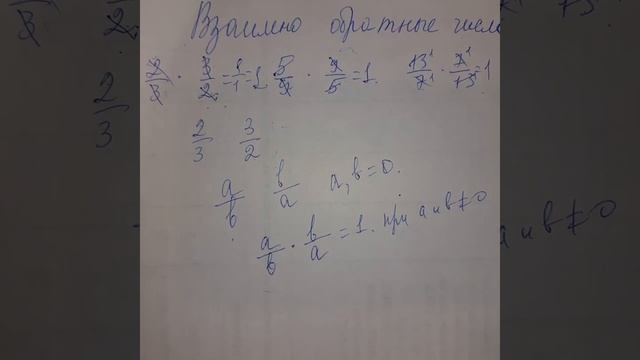 Взаимно обратные числа
2/3 · 3/2 = 1/1 = 1 5/9 · 9/5 = 1. 13/7 · 7/13 = 1
2/3 3/2
a/b b/a a, b = 0.
a/b · b/a = 1. при a и b ≠ 0